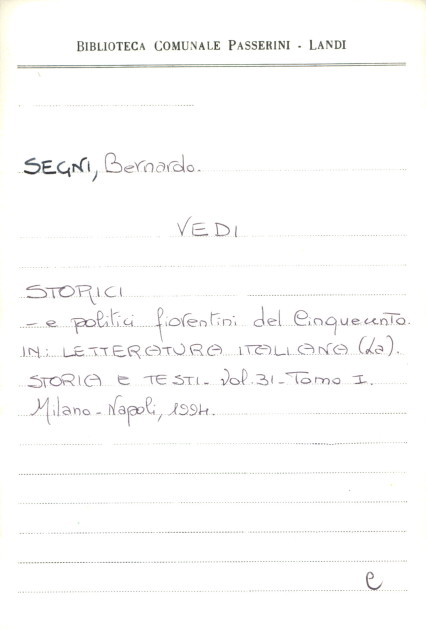 BIBLIOTECA COMUNALE PASSERINI - LANDI
SEGNI, Bernardo.
VEDI
STORICI
- e politici fiorentini del Cinquecento.
IN: LETTERATURA ITALIANA (La).
STORIA E TESTI. Vol. 31 - Tomo I.
Milano - Napoli, 1994.
e